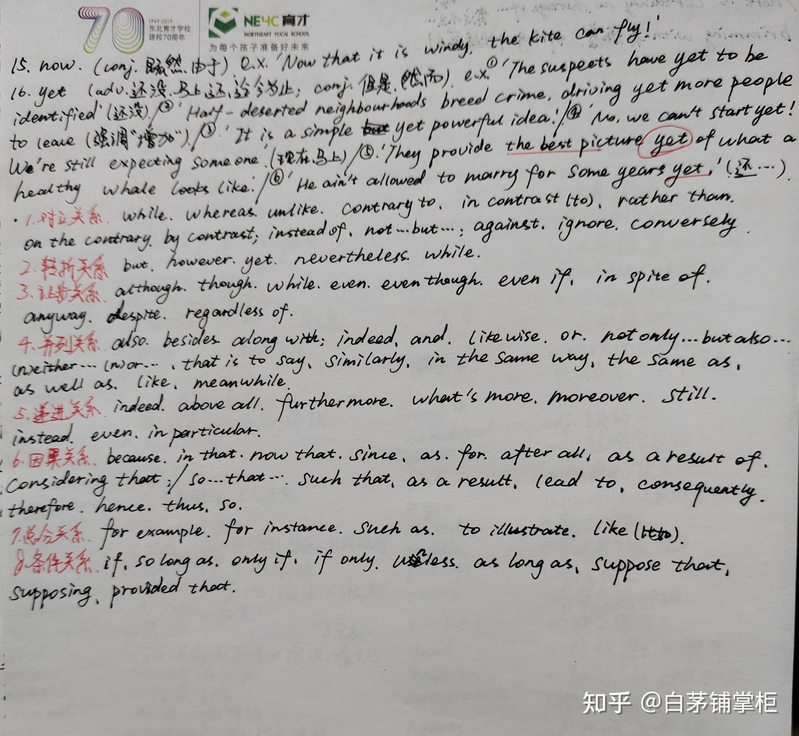 70
1949-2019
东北育才学校
建校70周年
NEYC 育才
NORTHEAST YUCAI SCHOOL
为每个孩子准备好未来
15. now. (conj. 既然.由于) e.x.'Now that it is windy. the kite can fly!'
16. yet (adv.还没.马上.还.迄今为止; conj. 但是.然而). e.x.①'The suspects have yet to be
identified'(还没)/②'Half-deserted neighbourhoods breed crime, driving yet more people
to leave (强调"增加")/③'It is a simple yet powerful idea.'/④'No, we can't start yet!
We're still expecting someone.'(现在.马上)/⑤'They provide the best picture yet of what a
healthy whale looks like.'/⑥'He ain't allowed to marry for some years yet.'(还…)
·1.对立关系. while. whereas. unlike. contrary to. in contrast (to). rather than.
on the contrary. by contrast; instead of. not…but…; against. ignore. conversely.
2.转折关系 but. however. yet. nevertheless. while.
3.让步关系. although. though. while. even. even though. even if. in spite of.
anyway. despite. regardless of.
4.并列关系. also. besides. along with; indeed. and. likewise. or. not only…but also…
(n)either…(n)or…. that is to say. similarly. in the same way. the same as.
as well as. like. meanwhile.
5.递进关系. indeed. above all. furthermore. what's more. moreover. still.
instead. even. in particular.
6.因果关系. because. in that. now that. since. as. for. after all. as a result of.
Considering that;/so…that… such that. as a result. lead to. consequently.
therefore. hence. thus. so.
7.总分关系. for example. for instance. such as. to illustrate. like (比如).
8.条件关系. if. so long as. only if. if only. unless. as long as. suppose that.
supposing. provided that.
知乎 @白茅铺掌柜